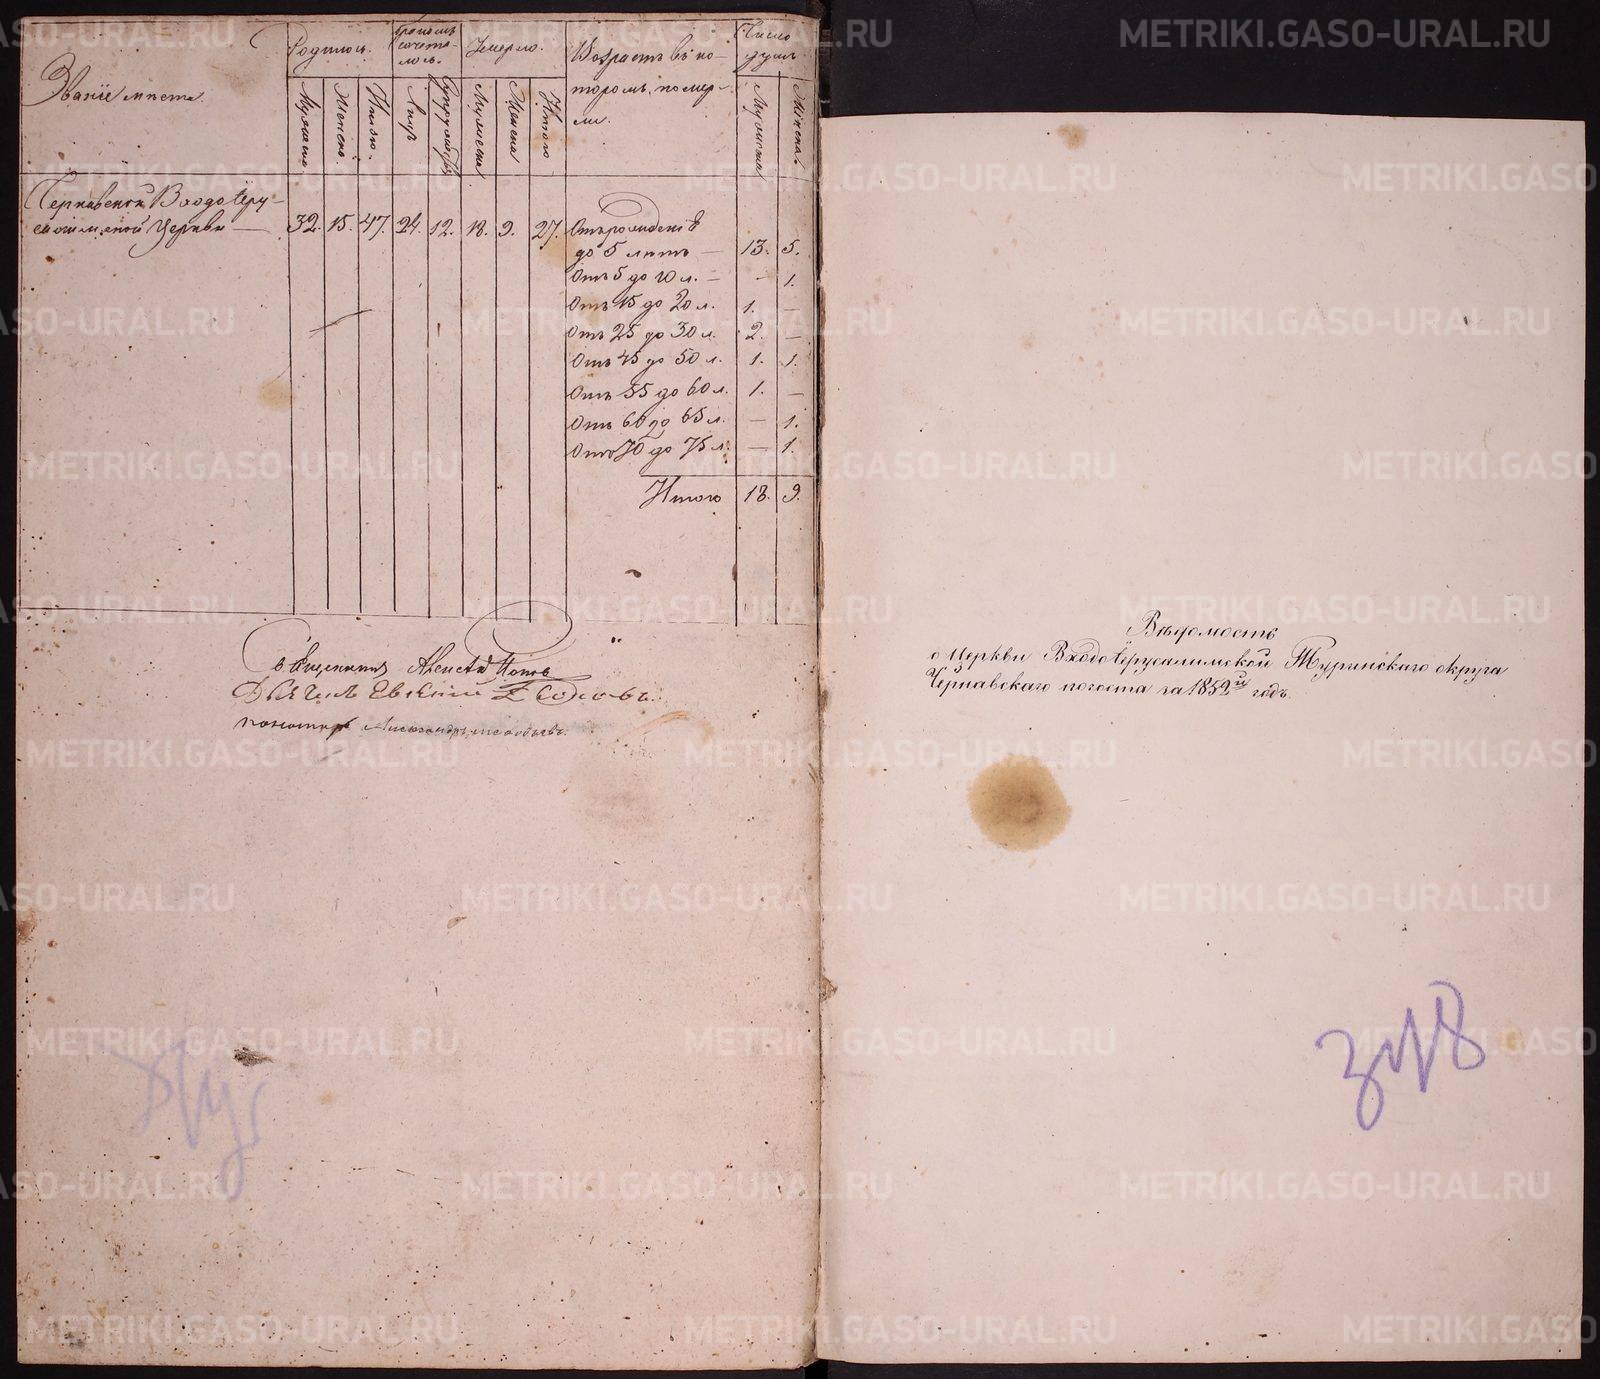 Званіе мѣста.
Родилось.
Бракомъ сочета-лось.
Умерло.
Возрастъ въ ко-
торомъ помер-
ли.
Число
душъ
Мужеска.
Женска.
Итого.
Лицъ
Супружествъ
Мужеска.
Женска
Итого
Мужеска
Женска.
Чернавской Входоіеру-
салимской Церкви — 32. 15. 47. 24. 12. 18. 9. 27.
Отъ рожденія
до 5 лѣтъ — 13. 5.
Отъ 5 до 10 л. — — 1.
Отъ 15 до 20 л. 1. —
Отъ 25 до 30 л. 2. —
Отъ 45 до 50 л. 1. 1.
Отъ 55 до 60 л. 1. —
Отъ 60 до 65 л. — 1.
Отъ 70 до 75 л. — 1.
Итого 18. 9.
Священникъ Алексѣй Поповъ
Дьячокъ Евгеній
пономарь Александръ
Вѣдомость
о Церкви Входоіерусалимской Туринскаго округа
Чернавскаго погоста за 1852й годъ.
METRIKI.GASO-URAL.RU